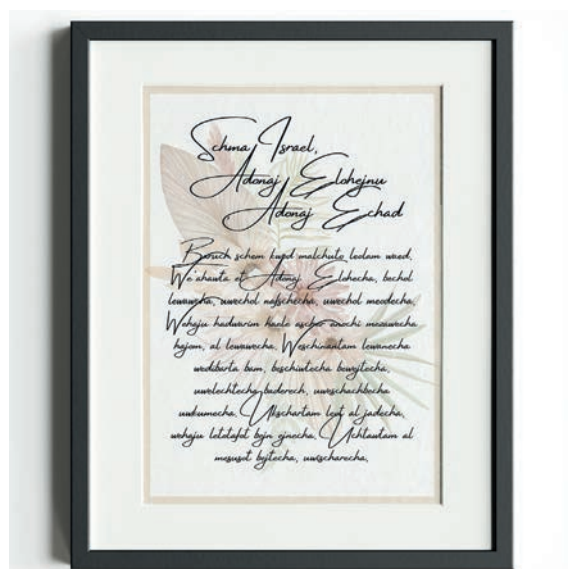 Schma Israel,
Adonaj Elohejnu
Adonaj Echad
Baruch schem kwod malchuto leolam waed.
We'ahawta et Adonaj Elohecha, bechol
lewawcha, uwechol nafschecha, uwechol meodecha,
Wehaju hadwarim haele ascher anochi mezawecha
hajom, al lewawecha. Weschinantam lewanecha
wedibarta bam, beschiwtecha bewejtecha,
uwelechtecha baderech, uweschachbecha
uwkumecha. Ukschartam leot al jadecha,
wehaju letotafot bejn ejnecha. Uchtawtam al
mesusot bejtecha, uwischarecha.